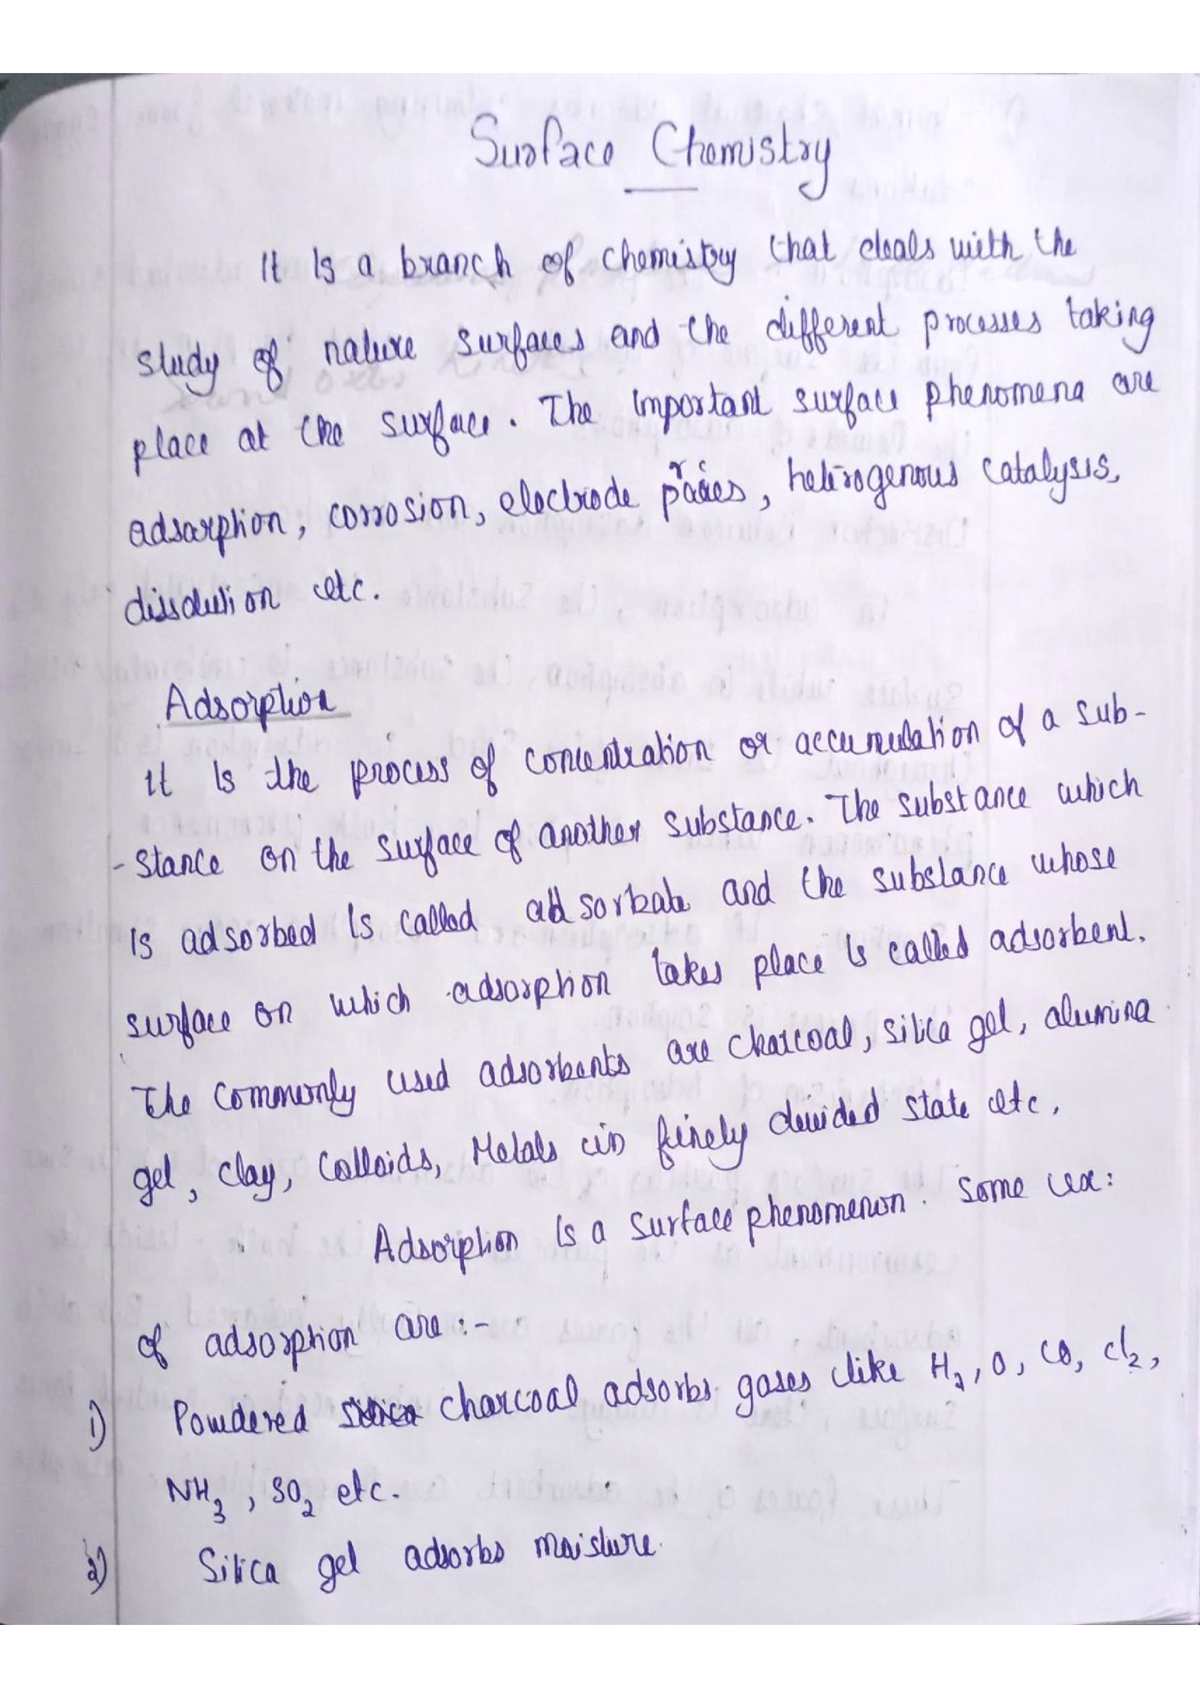 Surface Chemistry
It Is a branch of chemistry that deals with the
study of nature surfaces and the different processes taking
place at the surface. The Important surface phenomena are
adsarption, corrosion, electrode heterogenous catalysis,
dissolution etc.
Adsorption
It Is the process of concentration or accumulation of a sub-
-stance on the surface of another substance. The substance which
Is adsorbed Is called adsorbate and the substance whose
surface on which adsorption takes place Is called adsorbent.
The commonly used adsorbents are charcoal, silica gel, alumina
gel, clay, colloids, Metals in finely devided state etc.
Adsorption Is a surface phenomenon. Some ex:
of adsorption are :-
1) Powdered charcoal adsorbs gases like H2, O, CO, Cl2,
NH3, SO2 etc.
2) Silica gel adsorbs moisture.